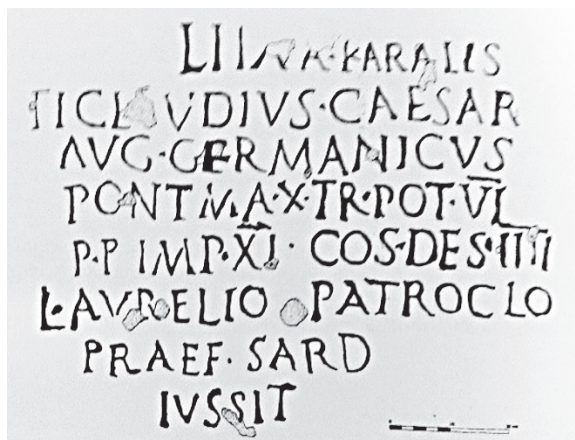 A·KARALIS
TICLAVDIVS·CAESAR
AVG·GERMANICVS
PONT MA·X·TR·POT·VI
P·P IMP·XI· COS·DES·IIII
L·AVRELIO PATROCLO
PRAEF·SARD
IVSSIT